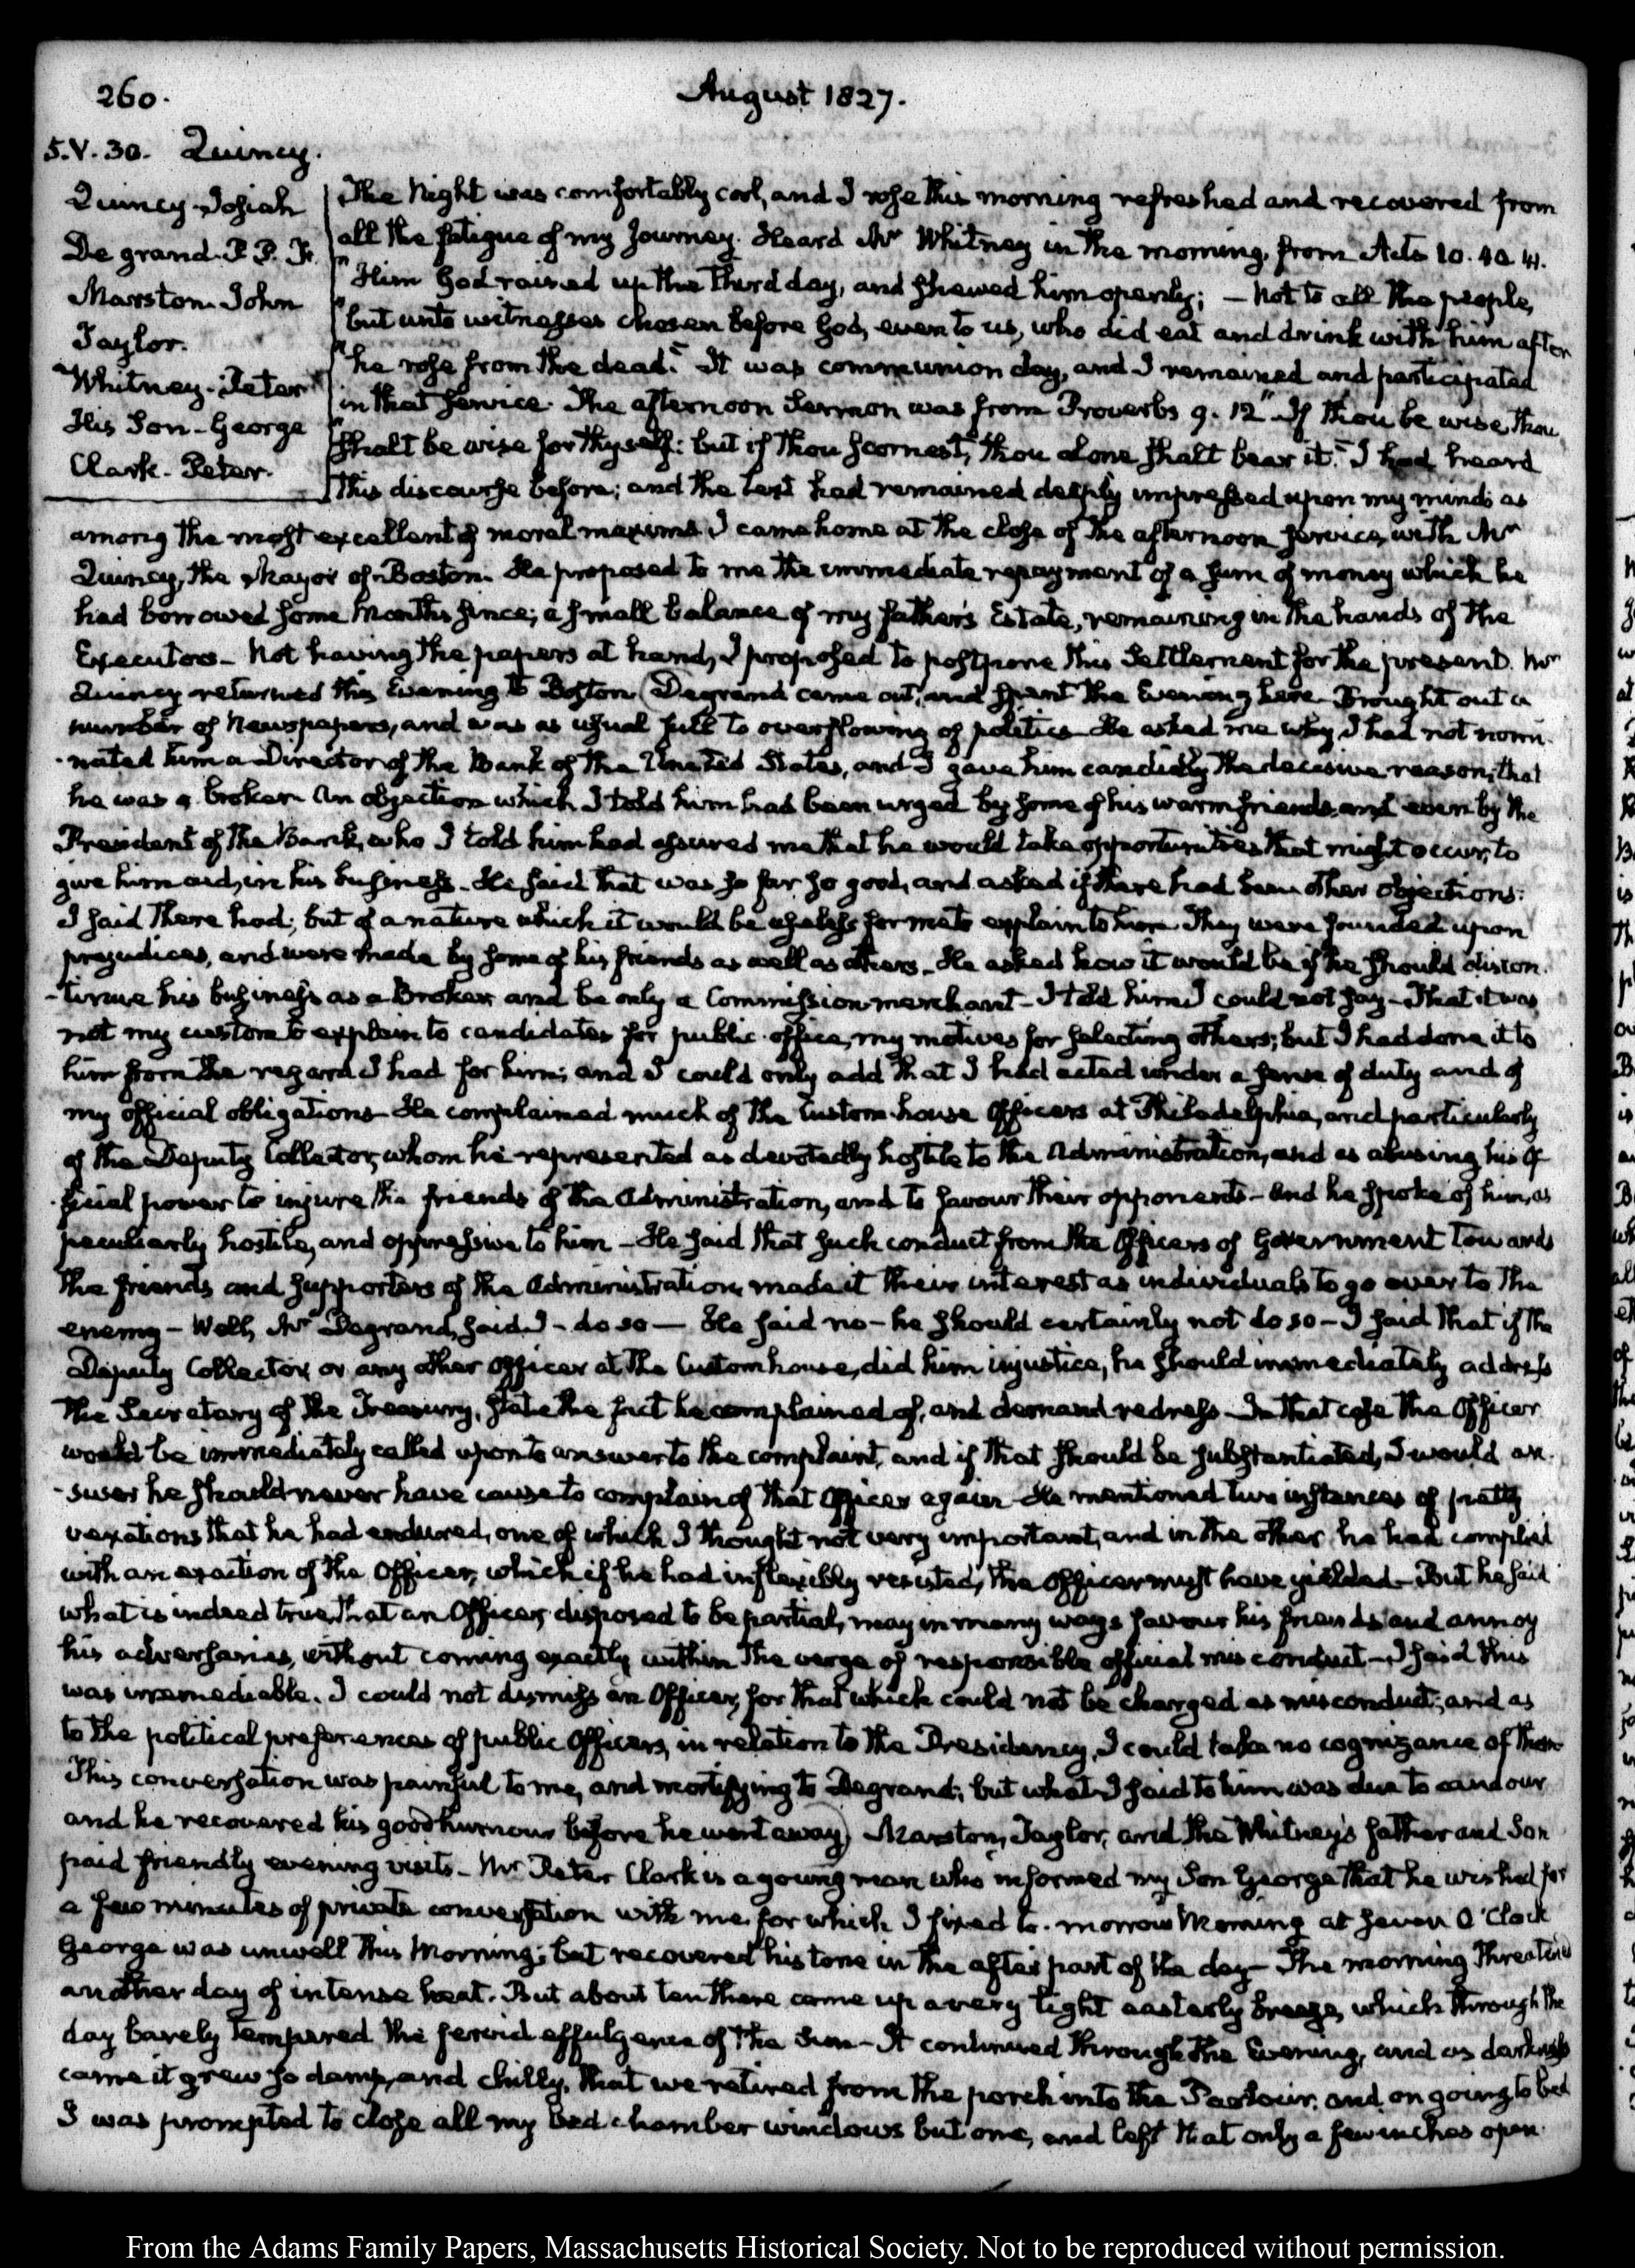 260.
August 1827.
5. V. 30. Quincy.
Quincy. Josiah
De grand. P. P. F.
Marston. John
Taylor.
Whitney. Peter
His Son - George
Clark. Peter.
The Night was comfortably cool, and I rose this morning refreshed and recovered from
all the fatigue of my Journey. Heard Mr Whitney in the morning, from Acts 10. 40. 41.
"Him God raised up the third day, and shewed him openly; — Not to all the people,
"but unto witnesses chosen before God, even to us, who did eat and drink with him after
"he rose from the dead." It was communion day, and I remained and participated
in that service. The afternoon Sermon was from Proverbs 9. 12 "If thou be wise, thou
"shalt be wise for thyself: but if thou scornest, thou alone shalt bear it." I had heard
this discourse before; and the text had remained deeply impressed upon my mind: as
among the most excellent of moral maxims. I came home at the close of the afternoon service, with Mr
Quincy, the Mayor of Boston. He proposed to me the immediate repayment of a sum of money which he
had borrowed some Months since; a small balance of my father's Estate, remaining in the hands of the
Executors - Not having the papers at hand, I proposed to postpone this Settlement for the present. Mr
Quincy returned this Evening to Boston (Degrand came out, and spent the Evening here. Brought out a
number of Newspapers, and was as usual full to overflowing of politics. He asked me why I had not nomi-
-nated him a Director of the Bank of the United States, and I gave him candidly the decisive reason, that
he was a broker. An objection which I told him had been urged by some of his warm friends, and even by the
President of the Bank, who I told him had assured me that he would take opportunities that might occur, to
give him aid, in his business - He said that was so far so good, and asked if there had been other objections:
I said there had; but of a nature which it would be useless for me to explain to him. They were founded upon
prejudices, and were made by some of his friends as well as others - He asked how it would be if he should discon-
-tinue his business as a Broker and be only a Commission-merchant - I told him I could not say - That it was
not my custom to explain to candidates for public office, my motives for selecting others; but I had done it to
him from the regard I had for him; and I could only add that I had acted under a sense of duty and of
my official obligations - He complained much of the Custom-house Officers at Philadelphia, and particularly
of the Deputy Collector, whom he represented as devotedly hostile to the Administration, and as abusing his of-
-ficial power to injure the friends of the Administration, and to favour their opponents - And he spoke of him, as
peculiarly hostile, and oppressive to him - He said that such conduct from the Officers of Government towards
the friends and supporters of the Administration, made it their interest as individuals to go over to the
enemy - Well, Mr Degrand, said I - do so — He said no - he should certainly not do so - I said that if the
Deputy Collector, or any other Officer at the Customhouse, did him injustice, he should immediately address
the Secretary of the Treasury, state the fact he complained of, and demand redress - In that case the Officer
would be immediately called upon to answer to the complaint, and if that should be substantiated, I would an-
-swer he should never have cause to complain of that Officer again - He mentioned two instances of petty
vexations that he had endured, one of which I thought not very important, and in the other he had complied
with an exaction of the Officer, which if he had inflexibly resisted, the Officer must have yielded - But he said
what is indeed true, that an Officer, disposed to be partial, may in many ways favour his friends and annoy
his adversaries, without coming exactly within the verge of responsible official misconduct - I said this
was irremediable. I could not dismiss an Officer, for that which could not be charged as misconduct; and as
to the political preferences of public Officers, in relation to the Presidency, I could take no cognizance of them
This conversation was painful to me, and mortifying to Degrand; but what I said to him was due to candour
and he recovered his good humour before he went away) Marston, Taylor, and the Whitney's father and Son
paid friendly evening visits - Mr Peter Clark is a young man who informed my Son George that he wished for
a few minutes of private conversation with me. for which I fixed to-morrow Morning at seven O'Clock
George was unwell this Morning; but recovered his tone in the after part of the day - The morning threatened
another day of intense heat. But about ten there came up a very light easterly breeze, which through the
day barely tempered the fervid effulgence of the Sun - It continued through the Evening, and as darkness
came it grew so damp, and chilly, that we retired from the porch into the Parlour, and on going to bed
I was prompted to close all my bed-chamber windows but one, and left that only a few inches open.
From the Adams Family Papers, Massachusetts Historical Society. Not to be reproduced without permission.